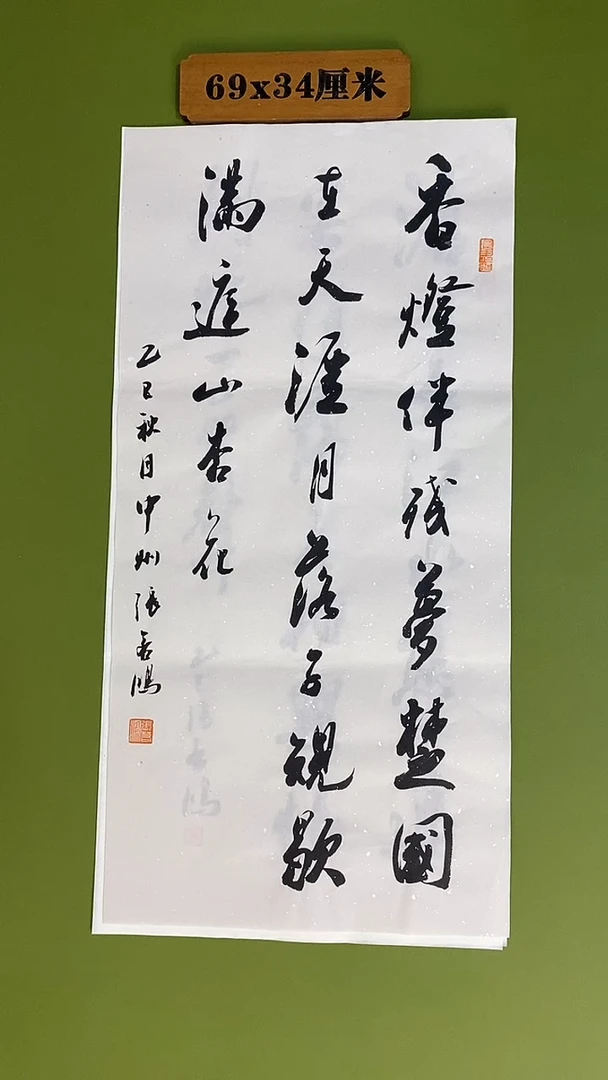 69x34厘米
香燈伴残夢楚國
在天涯月落子規歇
満庭山杏花
乙巳秋月中州張鴻